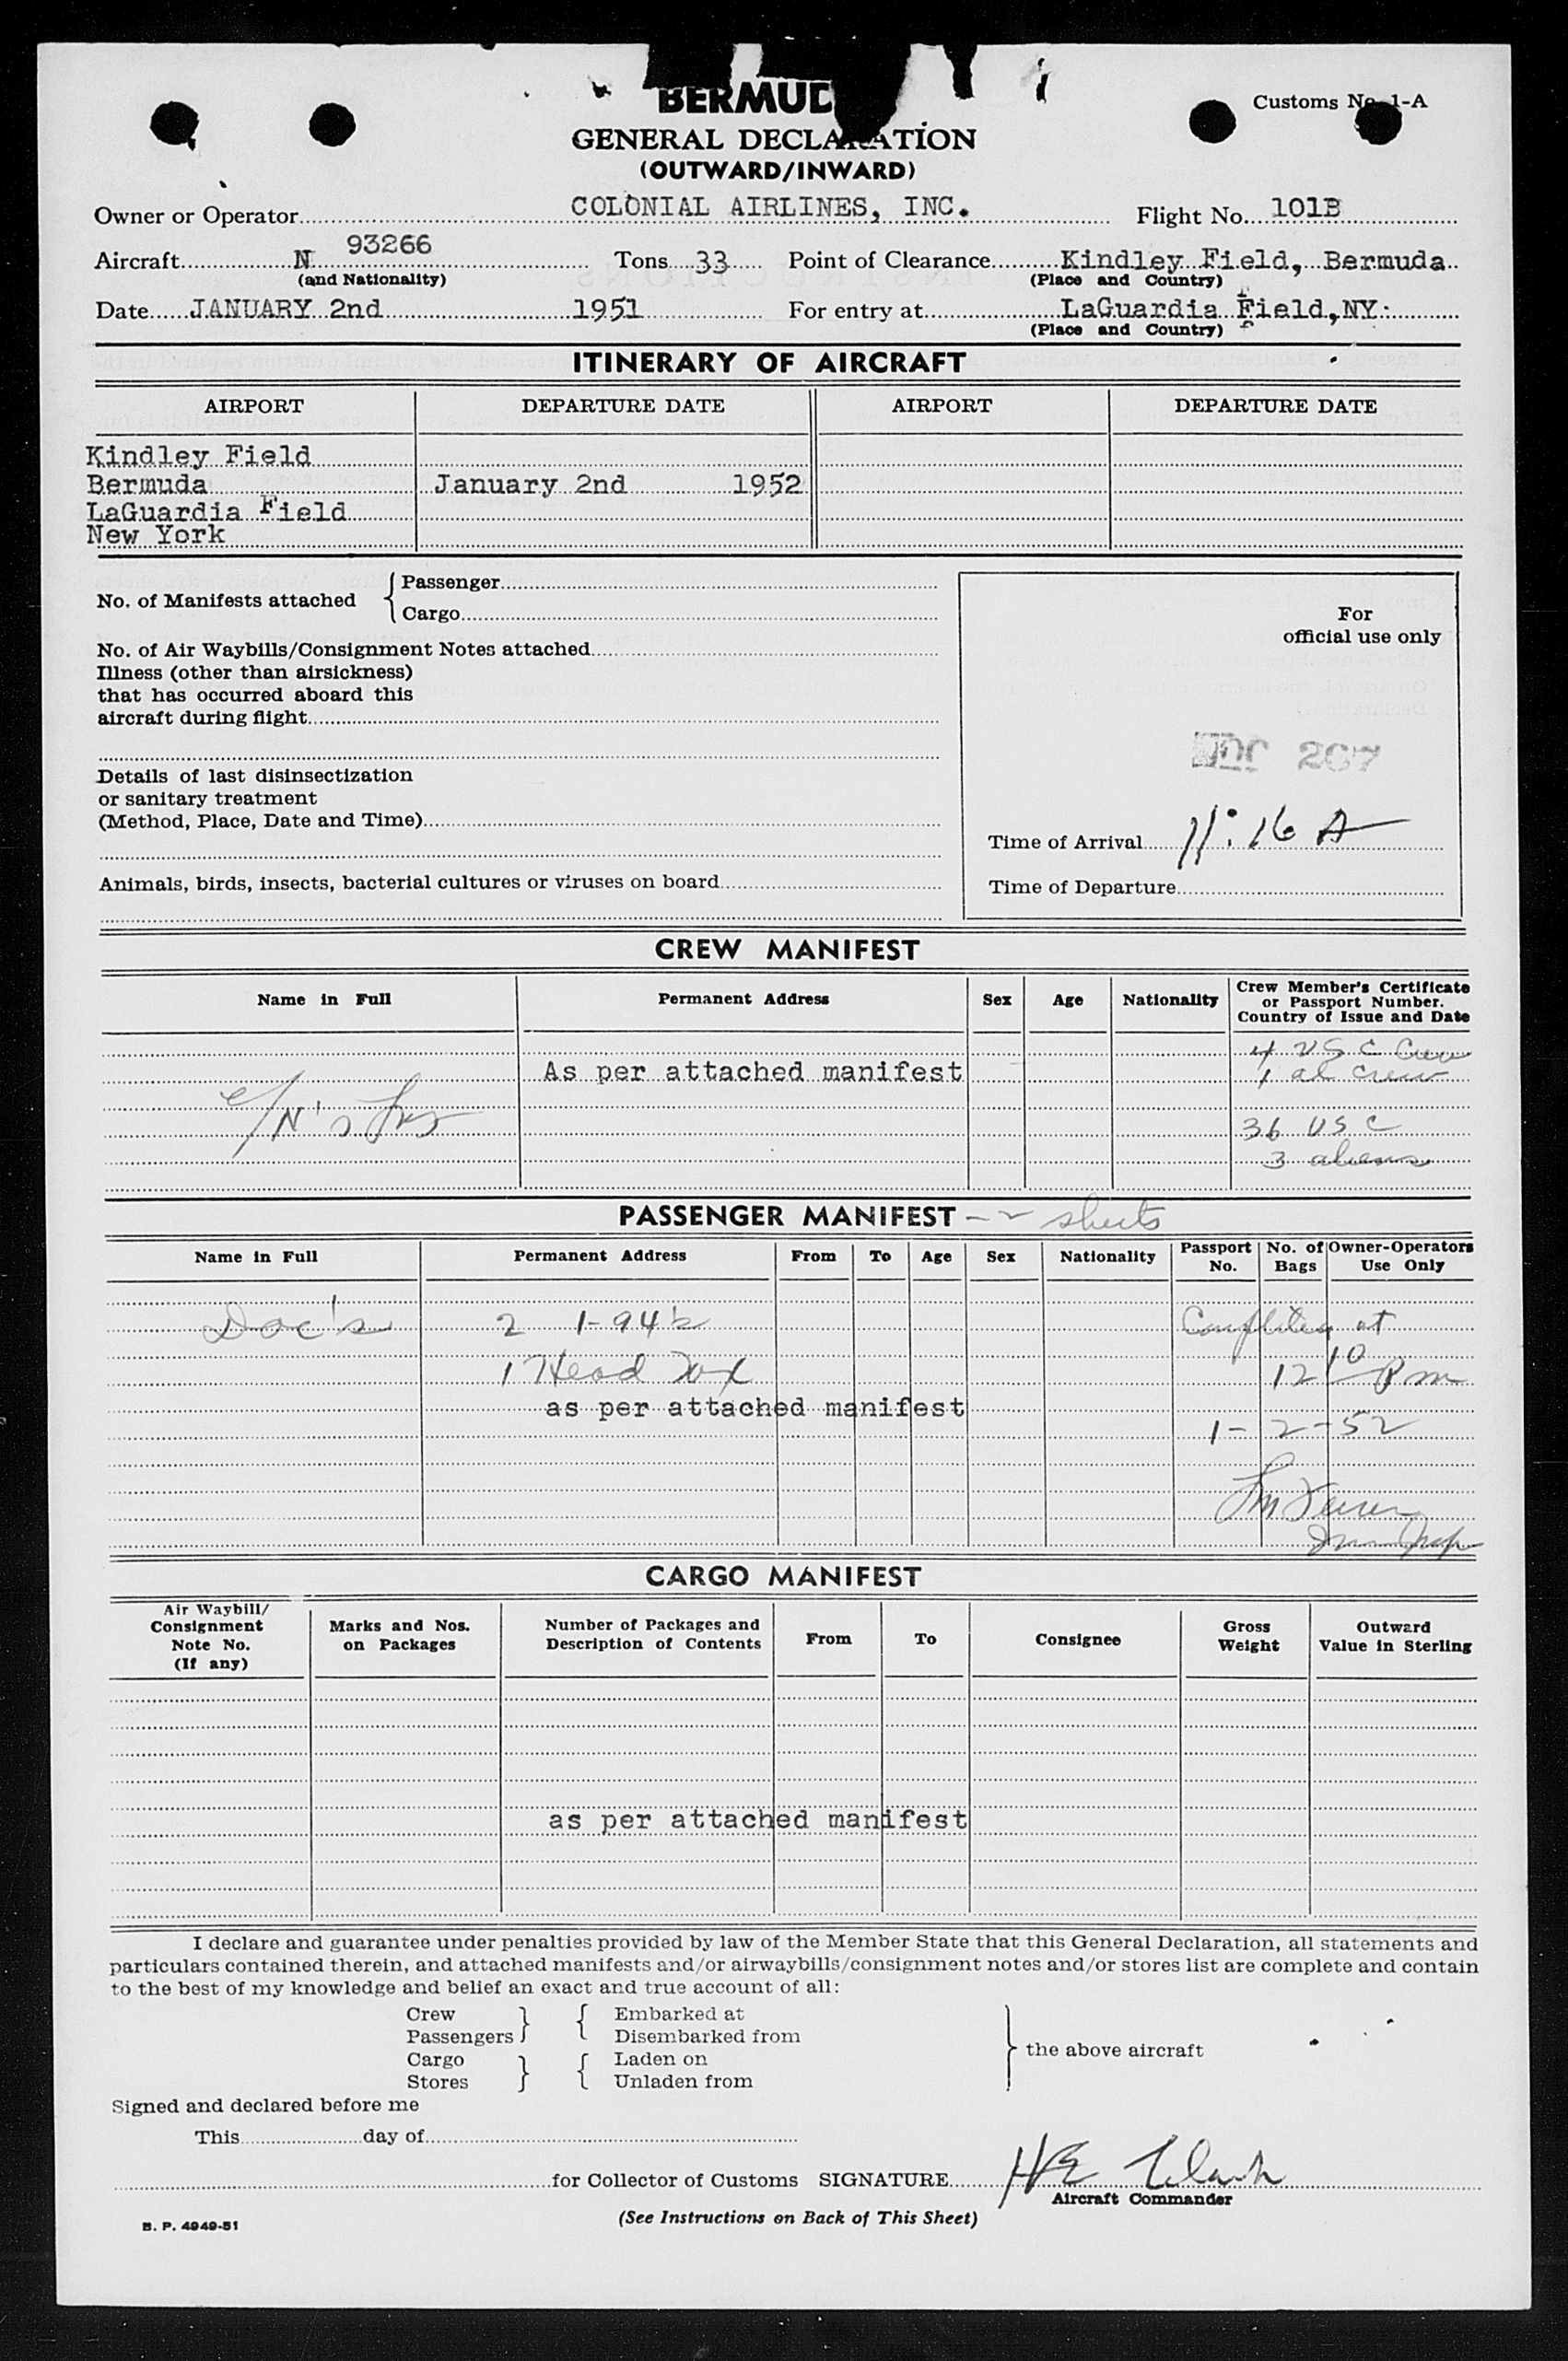 BERMUD
Customs No. 1-A
GENERAL DECLARATION
(OUTWARD/INWARD)
Owner or Operator COLONIAL AIRLINES, INC. Flight No. 101B
Aircraft N 93266 Tons 33 Point of Clearance Kindley Field, Bermuda
(and Nationality) (Place and Country)
Date JANUARY 2nd 1951 For entry at LaGuardia Field, NY.
(Place and Country)
ITINERARY OF AIRCRAFT
AIRPORT DEPARTURE DATE AIRPORT DEPARTURE DATE
Kindley Field
Bermuda January 2nd 1952
LaGuardia Field
New York
No. of Manifests attached { Passenger
Cargo
No. of Air Waybills/Consignment Notes attached
Illness (other than airsickness)
that has occurred aboard this
aircraft during flight
Details of last disinsectization
or sanitary treatment
(Method, Place, Date and Time)
Animals, birds, insects, bacterial cultures or viruses on board
For
official use only
Time of Arrival 11:16 A
Time of Departure
CREW MANIFEST
Name in Full Permanent Address Sex Age Nationality Crew Member's Certificate
or Passport Number.
Country of Issue and Date
4 USC Crew
As per attached manifest 1 al crew
36 USC
3 aliens
PASSENGER MANIFEST - 2 sheets
Name in Full Permanent Address From To Age Sex Nationality Passport No. No. of Bags Owner-Operators Use Only
Doc's 2 1-94's Completed at
1 Head Tax 12 10 Pm
as per attached manifest
1-2-52
Imm Insp
CARGO MANIFEST
Air Waybill/
Consignment
Note No.
(If any)
Marks and Nos.
on Packages
Number of Packages and
Description of Contents
From To Consignee
Gross
Weight
Outward
Value in Sterling
as per attached manifest
I declare and guarantee under penalties provided by law of the Member State that this General Declaration, all statements and
particulars contained therein, and attached manifests and/or airwaybills/consignment notes and/or stores list are complete and contain
to the best of my knowledge and belief an exact and true account of all:
Crew } { Embarked at
Passengers Disembarked from
Cargo } { Laden on
Stores Unladen from
} the above aircraft
Signed and declared before me
This day of
for Collector of Customs SIGNATURE HE Clark
Aircraft Commander
(See Instructions on Back of This Sheet)
B. P. 4949-51